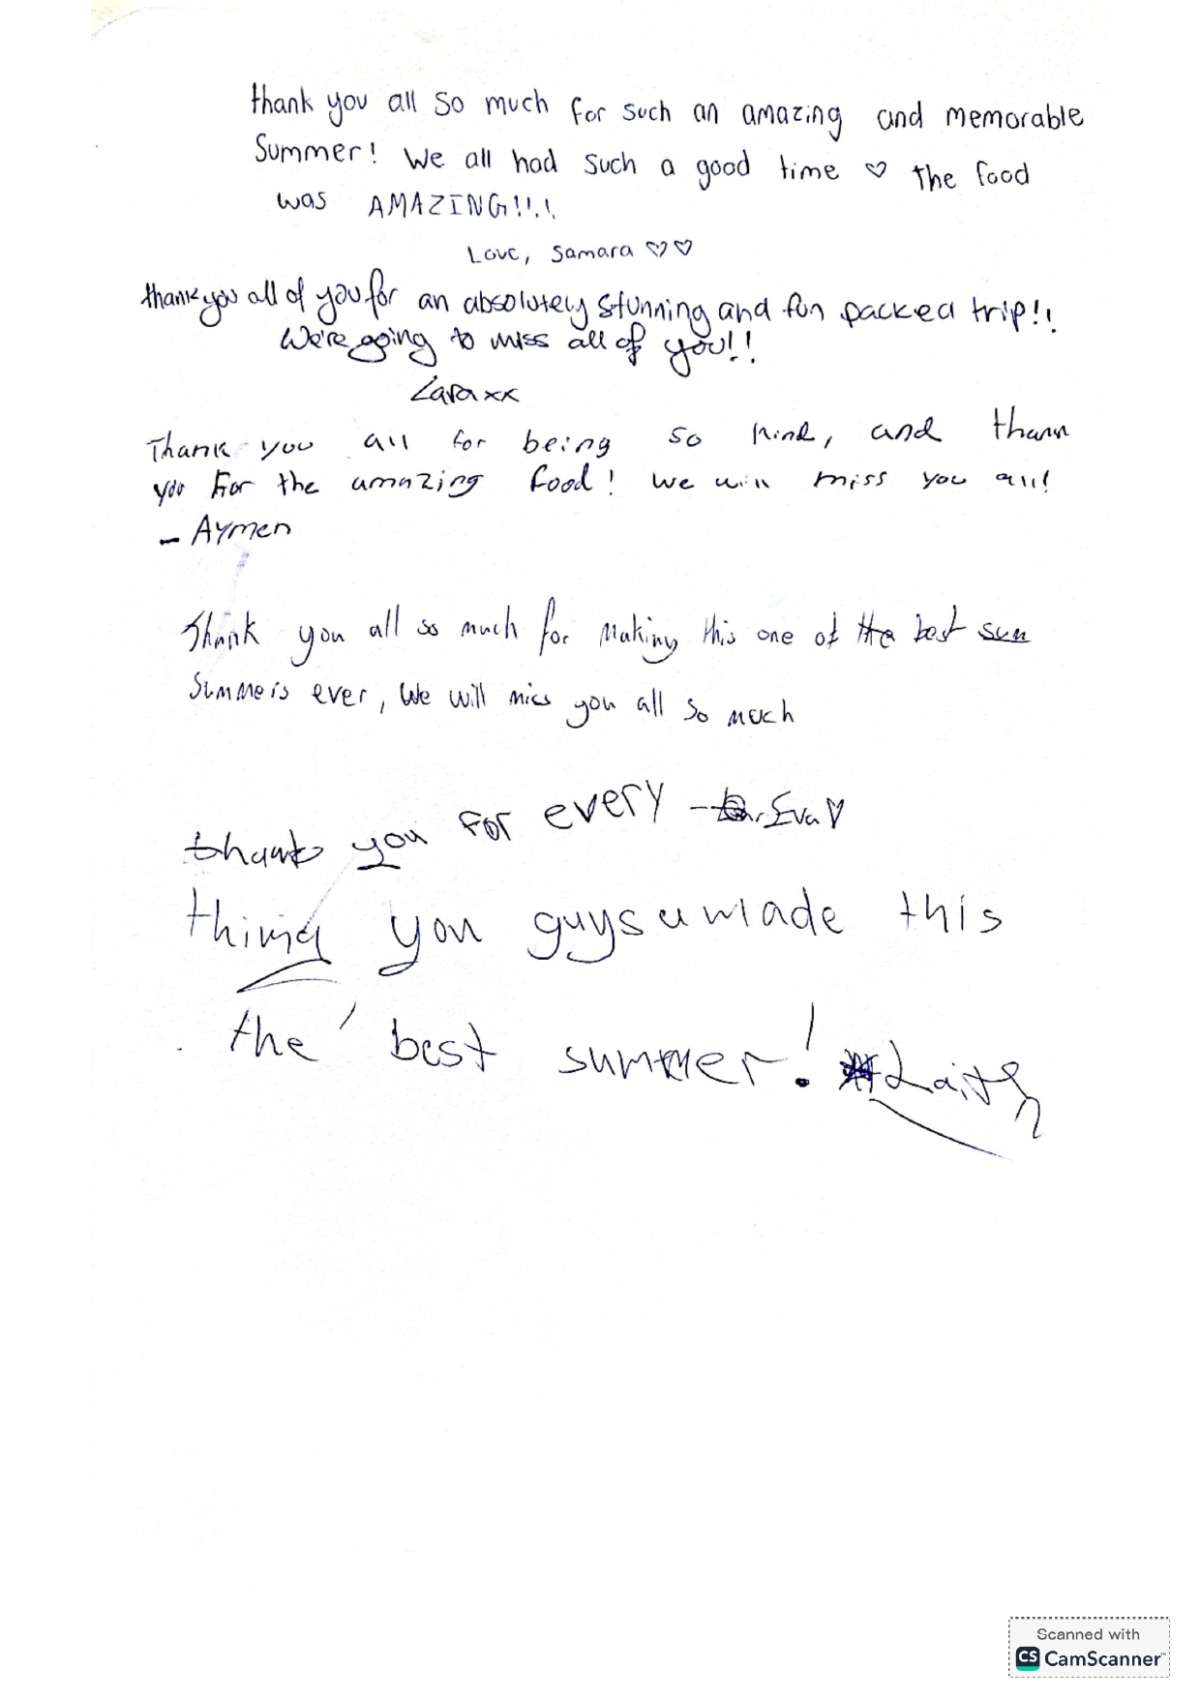 thank you all so much for such an amazing and memorable
Summer! We all had such a good time ♡ The food
was AMAZING!!!!
Love, Samara ♡♡
thank you all of you for an absolutely stunning and fun packed trip!!
We're going to miss all of you!!
Lara xx
Thank you all for being so kind, and thank
you for the amazing food! We will miss you all!
- Aymen
Thank you all so much for making this one of the best sum
summers ever, We will miss you all so much
- Eva ♡
thank you for every
thing you guys u made this
the best summer! Laith
Scanned with
CS CamScanner